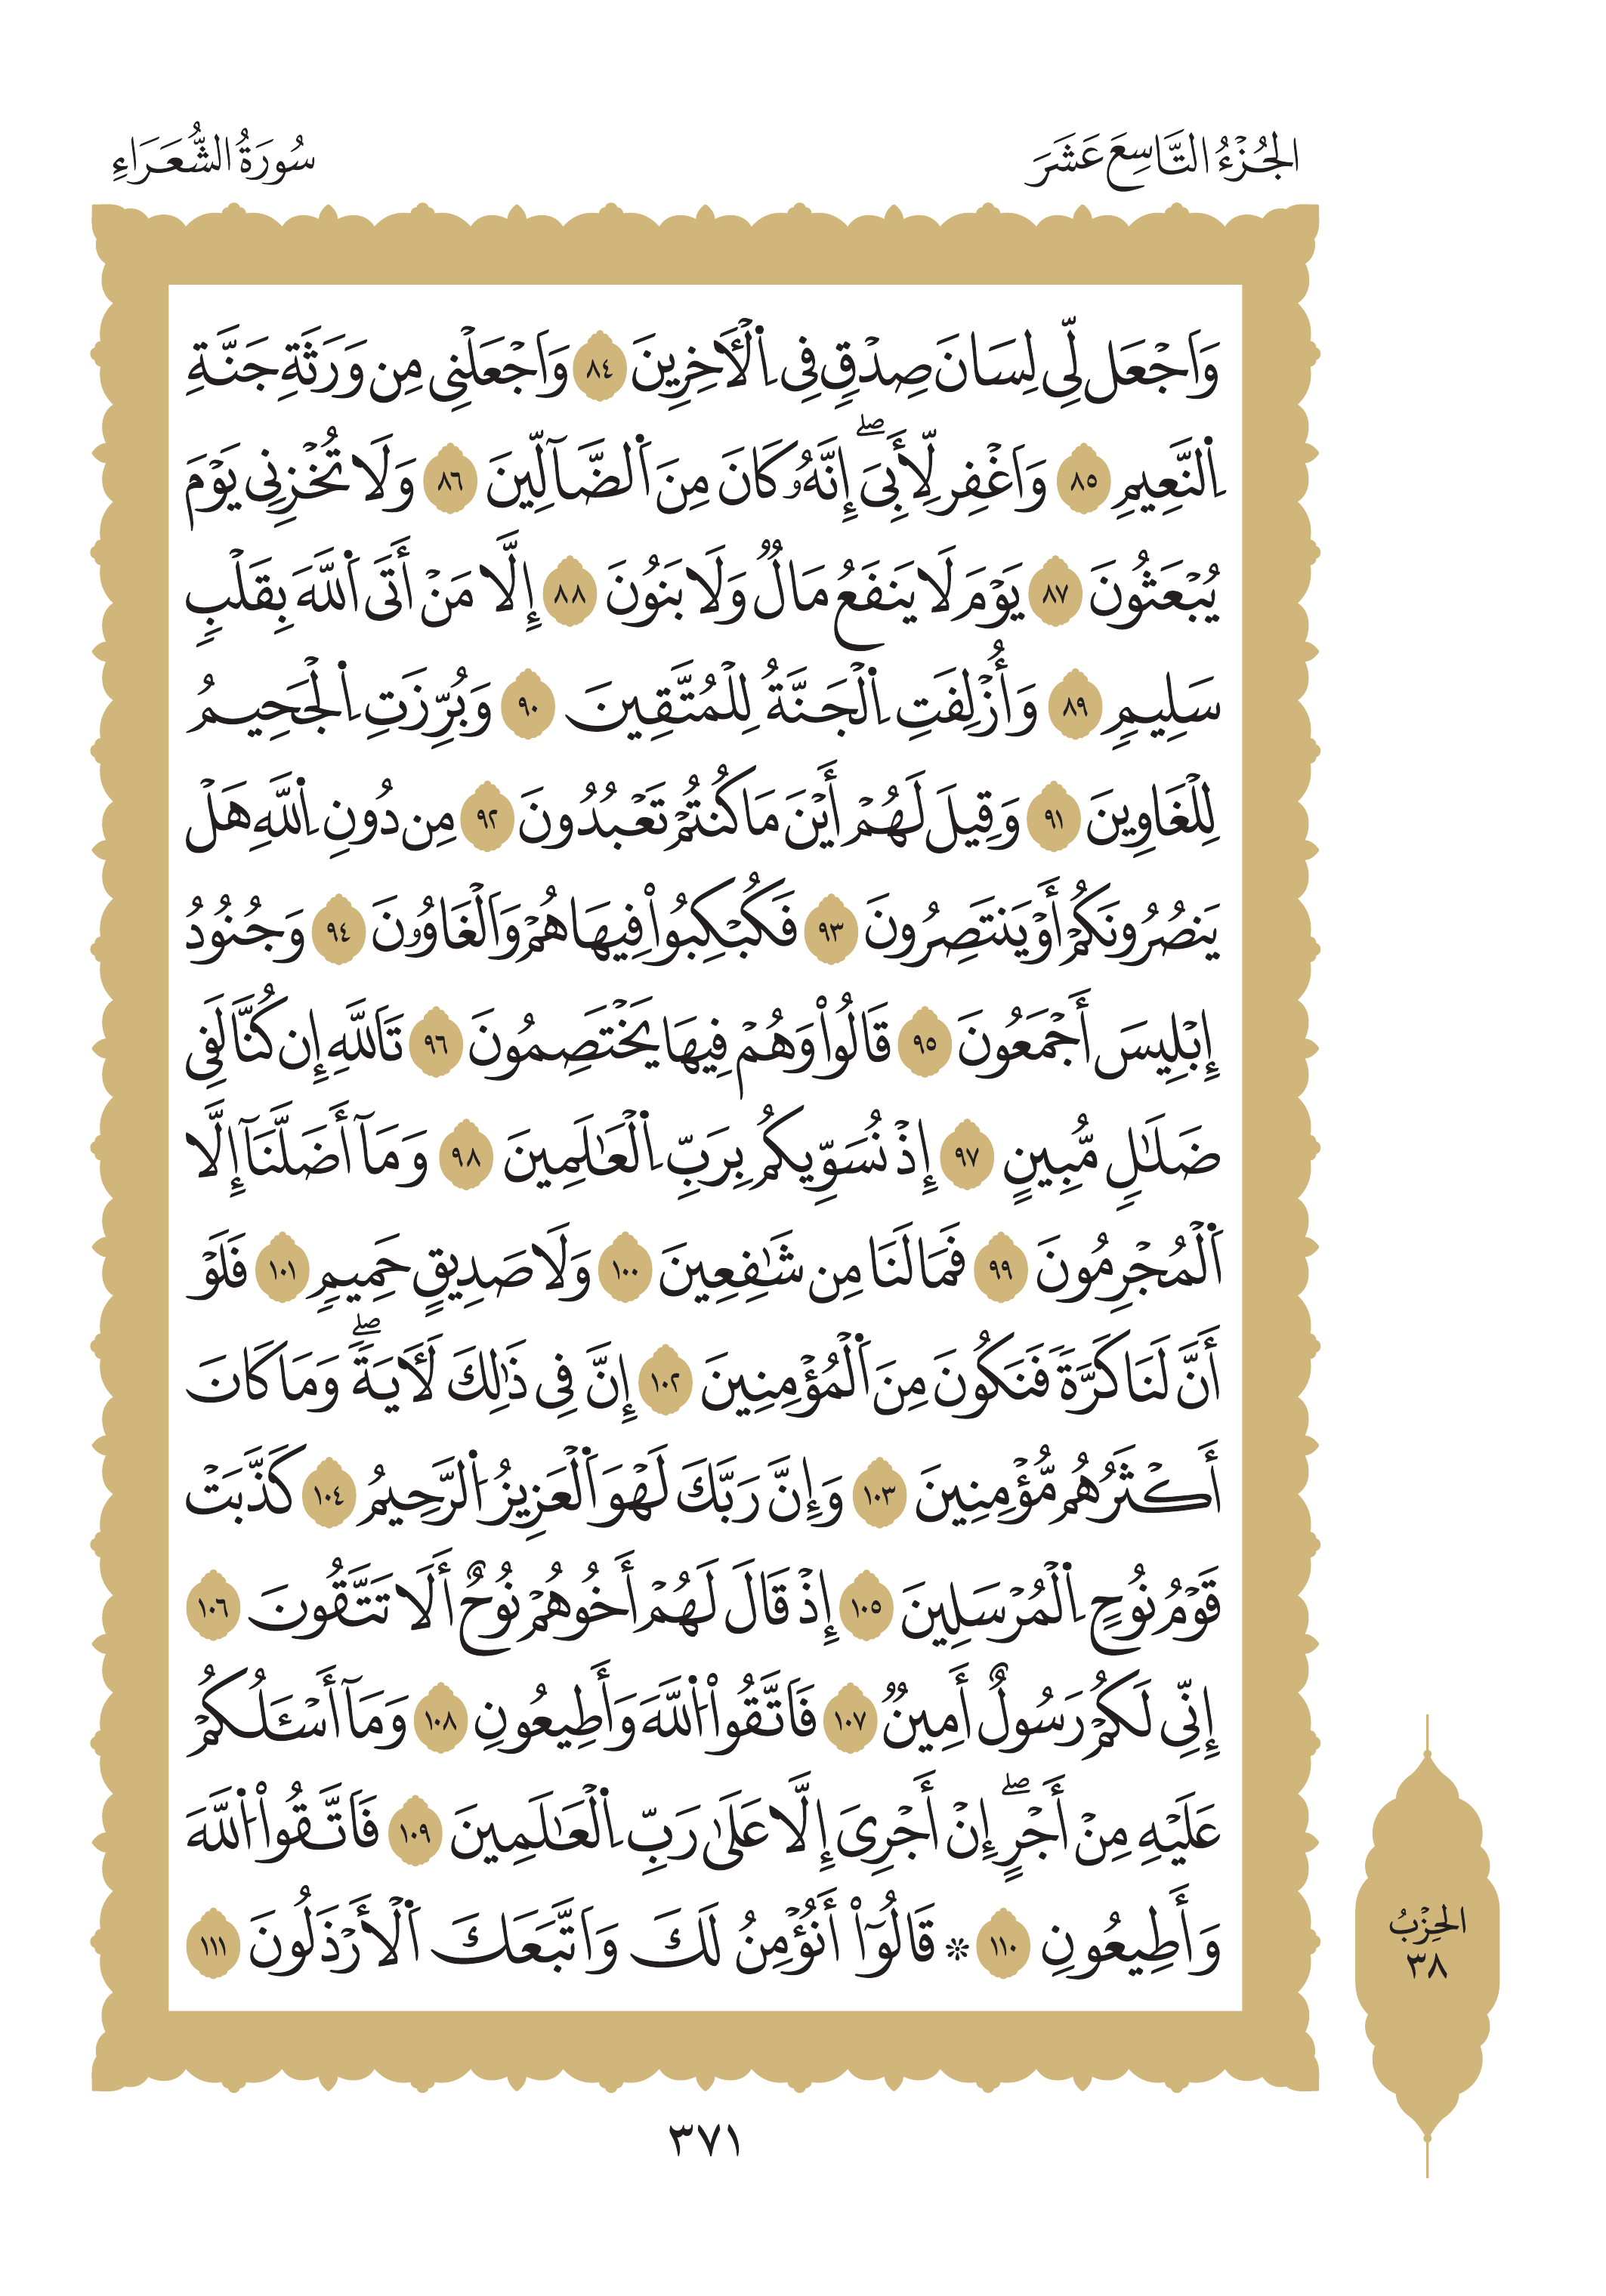 الجُزْءُ التَّاسِعَ عَشَرَ
سُورَةُ الشُّعَرَاءِ
وَاَجْعَل لِّى لِسَانَ صِدْقٍ فِى اِ۬لْأٓخِرِينَ ٨٤ وَاَجْعَلْنِى مِن وَرَثَةِ جَنَّةِ
اِ۬لنَّعِيمِ ٨٥ وَاَغْفِر لِّأَبِىَ ۖ إِنَّهُۥ كَانَ مِنَ اَ۬لضَّآلِّينَ ٨٦ وَلَا تُخْزِنِى يَوْمَ
يُبْعَثُونَ ٨٧ يَوْمَ لَا يَنفَعُ مَالٌ وَلَا بَنُونَ ٨٨ إِلَّا مَنْ أَتَى اَ۬للَّهَ بِقَلْبٍ
سَلِيمٍ ٨٩ وَأُزْلِفَتِ اِ۬لْجَنَّةُ لِلْمُتَّقِينَ ٩٠ وَبُرِّزَتِ اِ۬لْجَحِيمُ
لِلْغَاوِينَ ٩١ وَقِيلَ لَهُمْ أَيْنَ مَا كُنتُمْ تَعْبُدُونَ ٩٢ مِن دُونِ اِ۬للَّهِ هَلْ
يَنصُرُونَكُمْ أَوْ يَنتَصِرُونَ ٩٣ فَكُبْكِبُواْ فِيهَا هُمْ وَاَلْغَاوُۥنَ ٩٤ وَجُنُودُ
إِبْلِيسَ أَجْمَعُونَ ٩٥ قَالُواْ وَهُمْ فِيهَا يَخْتَصِمُونَ ٩٦ تَاَللَّهِ إِن كُنَّا لَفِى
ضَلَٰلٍ مُّبِينٍ ٩٧ إِذْ نُسَوِّيكُم بِرَبِّ اِ۬لْعَٰلَمِينَ ٩٨ وَمَآ أَضَلَّنَآ إِلَّا
اَ۬لْمُجْرِمُونَ ٩٩ فَمَا لَنَا مِن شَٰفِعِينَ ١٠٠ وَلَا صَدِيقٍ حَمِيمٍ ١٠١ فَلَوْ
أَنَّ لَنَا كَرَّةً فَنَكُونَ مِنَ اَ۬لْمُؤْمِنِينَ ١٠٢ إِنَّ فِى ذَٰلِكَ لَأٓيَةً ۖ وَمَا كَانَ
أَكْثَرُهُم مُّؤْمِنِينَ ١٠٣ وَإِنَّ رَبَّكَ لَهْوَ اَ۬لْعَزِيزُ اُ۬لرَّحِيمُ ١٠٤ كَذَّبَتْ
قَوْمُ نُوحٍ اِ۬لْمُرْسَلِينَ ١٠٥ إِذْ قَالَ لَهُمْ أَخُوهُمْ نُوحٌ أَلَا تَتَّقُونَ ١٠٦
إِنِّى لَكُمْ رَسُولٌ أَمِينٌ ١٠٧ فَاَتَّقُواْ اُ۬للَّهَ وَأَطِيعُونِ ١٠٨ وَمَآ أَسْـَٔلُكُمْ
عَلَيْهِ مِنْ أَجْرٍ ۖ إِنْ أَجْرِىَ إِلَّا عَلَىٰ رَبِّ اِ۬لْعَٰلَمِينَ ١٠٩ فَاَتَّقُواْ اُ۬للَّهَ
وَأَطِيعُونِ ١١٠ ۞ قَالُوٓاْ أَنُؤْمِنُ لَكَ وَاَتَّبَعَكَ اَ۬لْأَرْذَلُونَ ١١١
الحِزْبُ
٣٨
٣٧١